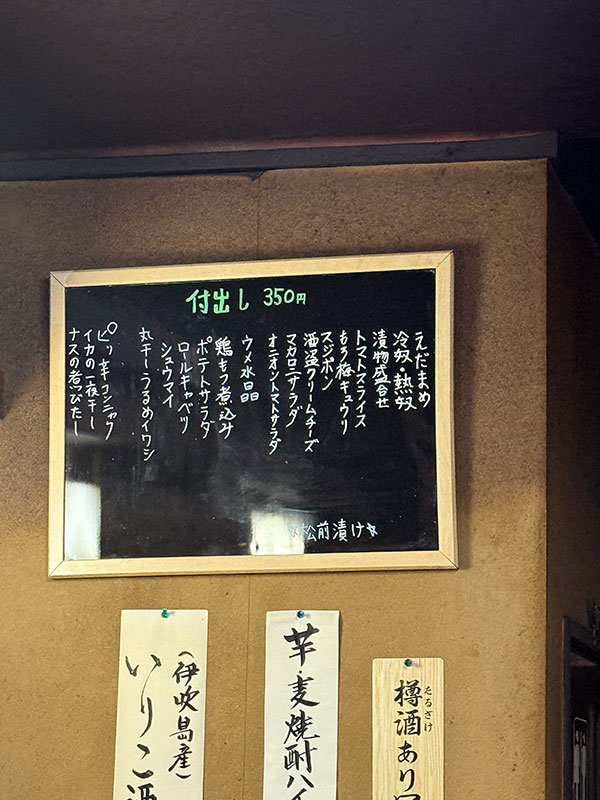 付出し 350円
えだまめ
冷奴・熱奴
漬物盛合せ
トマトスライス
もろ極キュウリ
スジポン
酒盗クリームチーズ
マカロニサラダ
オニオントマトサラダ
ウメ水晶
鶏もつ煮込み
ポテトサラダ
ロールキャベツ
シュウマイ
丸干しうるめイワシ
ピリッキーコンニャク
イカの一夜干し
ナスの煮びたし
☆松前漬け☆
樽酒あり
たるざけ
芋・麦焼酎ハイ
(伊吹島産)
いりこ酒